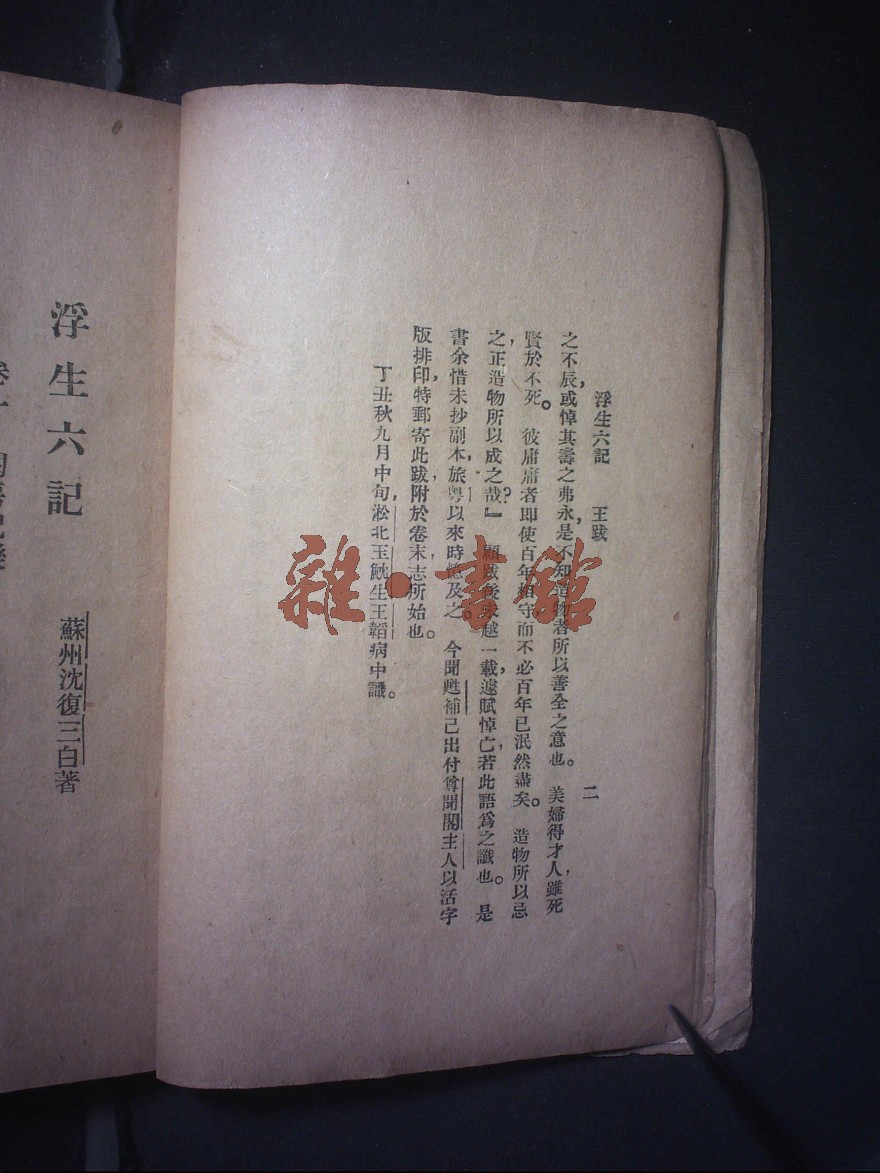 浮生六記　王跋　二
之不辰，或悼其壽之弗永，是不知造物者所以善全之意也。美婦得才人，雖死
賢於不死。彼庸庸者即使百年相守，而不必百年已泯然盡矣。造物所以忌
之，正造物所以成之哉？』顧跋後未越一載，遽賦悼亡，若此語爲之讖也。是
書余惜未抄副本，旅粵以來時憶及之。今聞甦補已出付尊聞閣主人以活字
版排印，特郵寄此跋，附於卷末，志所始也。
丁丑秋九月中旬，淞北玉魫生王韜病中識。
浮生六記
蘇州沈復三白著
雜·書館